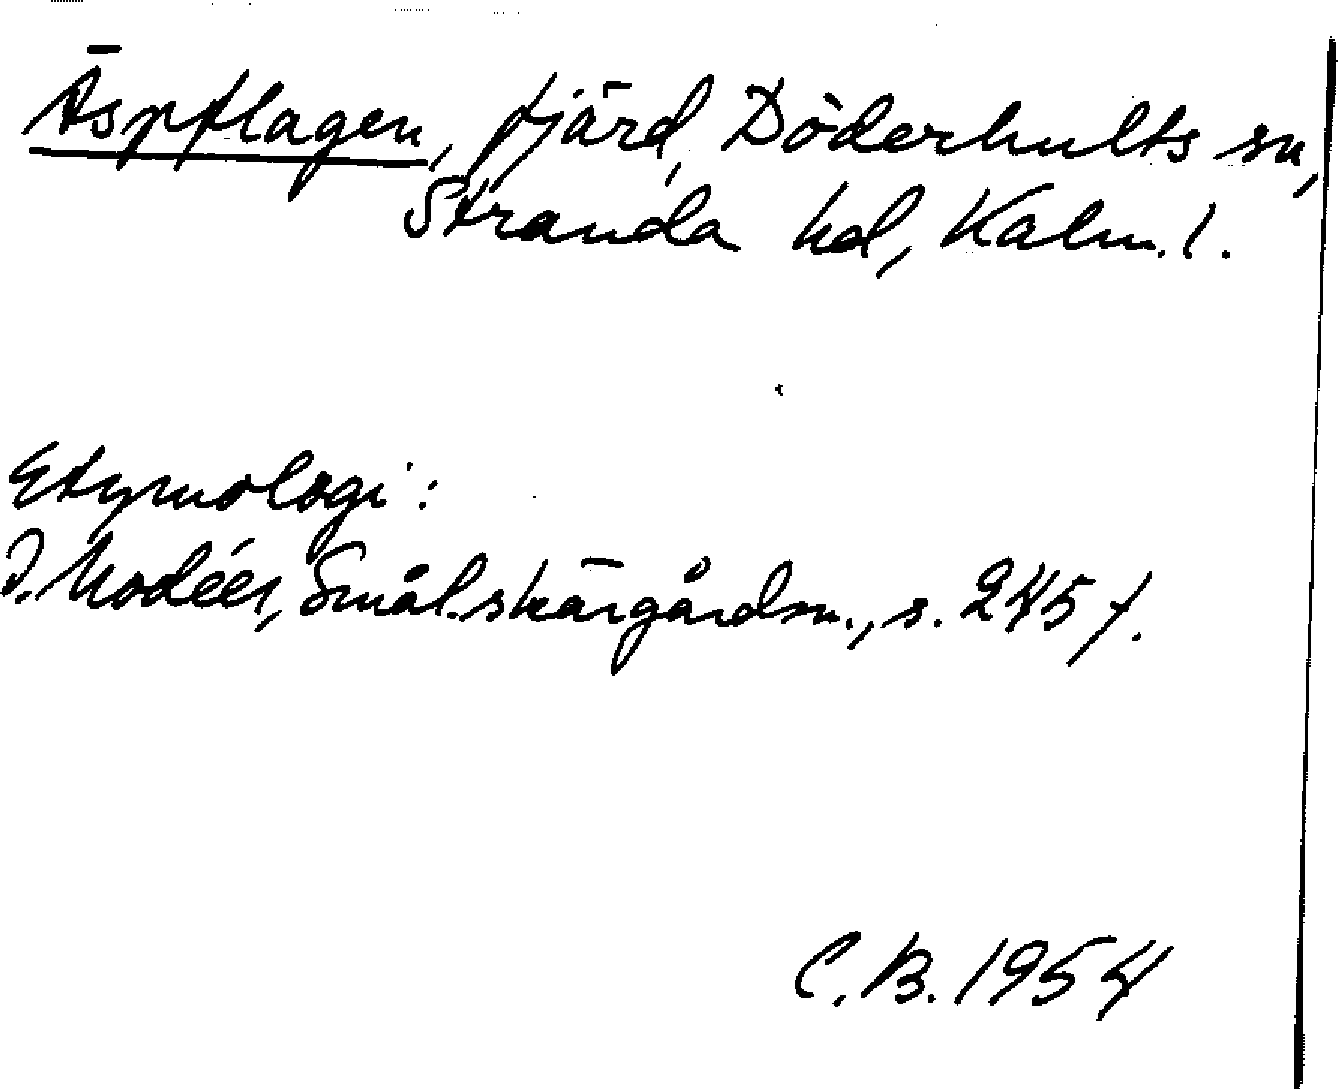 Äspflagen, fjärd, Döderhults sn,
Stranda hd, Kalm. l.
Etymologi:
I. Modéer, Smål. skärgårdsn., s. 245 f.
C. B. 1954